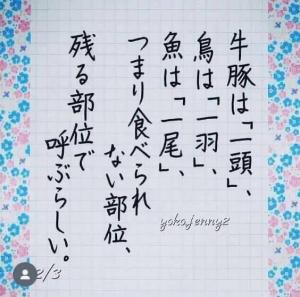 牛豚は「一頭」、
鳥は「一羽」、
魚は「一尾」、
つまり食べられ
ない部位、
残る部位で
呼ぶらしい。
yokojenny2
2/3